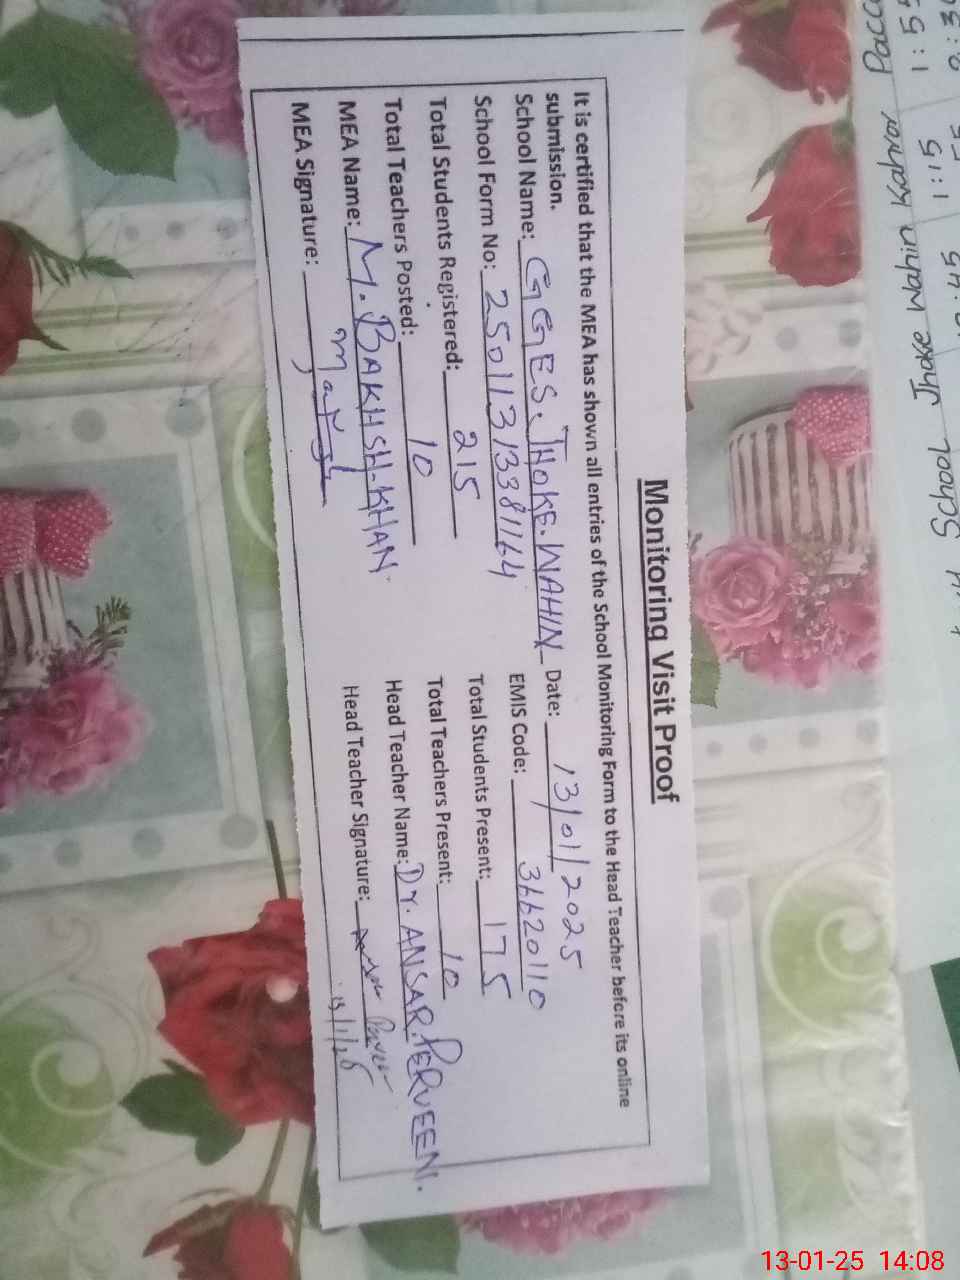 Monitoring Visit Proof
It is certified that the MEA has shown all entries of the School Monitoring Form to the Head Teacher before its online
submission.
School Name: GGES. JHOKE. WAHIN Date: 13/01/2025
School Form No: 25011313381164 EMIS Code: 36620110
Total Students Registered: 215 Total Students Present: 175
Total Teachers Posted: 10 Total Teachers Present: 10
MEA Name: M. BAKHSH-KHAN. Head Teacher Name: Dr. ANSAR. PERVEEN.
MEA Signature: Head Teacher Signature:
School Jhoke Wahin
1:15
13-01-25 14:08